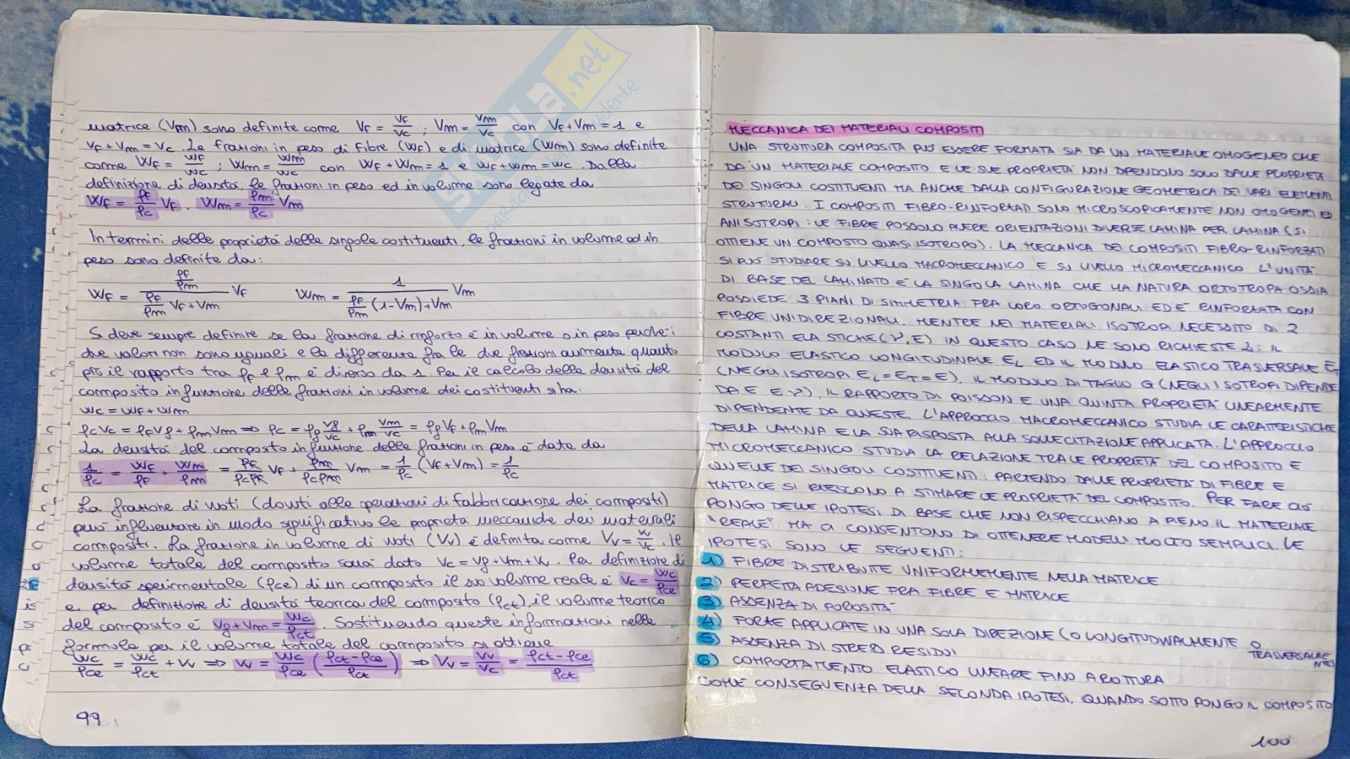 matrice (Vm) sono definite come Vf = vf/vc ; Vm = vm/vc con Vf + Vm = 1 e
vf + vm = vc. Le frazioni in peso di fibre (Wf) e di matrice (Wm) sono definite
come Wf = wf/wc ; Wm = wm/wc con Wf + Wm = 1 e wf + wm = wc. Dalla
definizione di densità, le frazioni in peso ed in volume sono legate da
Wf = ρf/ρc Vf . Wm = ρm/ρc Vm
In termini delle proprietà delle singole costituenti, le frazioni in volume ed in
peso sono definite da:
Wf = (ρf/ρm)/(ρf/ρm Vf + Vm) Vf Wm = 1/(ρf/ρm (1-Vm)+Vm) Vm
S deve sempre definire se la frazione di rinforzo è in volume o in peso perché i
due valori non sono uguali e la differenza fra le due frazioni aumenta quanto
più il rapporto tra ρf e ρm è diverso da 1. Per il calcolo della densità del
composito in funzione delle frazioni in volume dei costituenti si ha:
wc = wf + wm
ρc vc = ρf vf + ρm vm ⇒ ρc = ρf vf/vc + ρm vm/vc = ρf Vf + ρm Vm
La densità del composito in funzione delle frazioni in peso è data da
1/ρc = Wf/ρf + Wm/ρm = ρf/ρcρf Vf + ρm/ρcρm Vm = 1/ρc (Vf + Vm) = 1/ρc
La frazione di vuoti (dovuti alle operazioni di fabbricazione dei compositi)
può influenzare in modo significativo le proprietà meccaniche dei materiali
compositi. La frazione in volume di vuoti (Vv) è definita come Vv = vv/vc. Il
volume totale del composito sarà dato vc = vf + vm + vv. Per definizione di
densità sperimentale (ρce) di un composito il suo volume reale è vc = wc/ρce
e per definizione di densità teorica del composito (ρct), il volume teorico
del composito è vf + vm = wc/ρct. Sostituendo queste informazioni nelle
formule per il volume totale del composito si ottiene
wc/ρce = wc/ρct + vv ⇒ vv = wc/ρce (ρct - ρce / ρct) ⇒ Vv = vv/vc = ρct - ρce / ρct
99
MECCANICA DEI MATERIALI COMPOSITI
UNA STRUTTURA COMPOSITA PUÒ ESSERE FORMATA SIA DA UN MATERIALE OMOGENEO CHE
DA UN MATERIALE COMPOSITO E LE SUE PROPRIETÀ NON DIPENDONO SOLO DALLE PROPRIETÀ
DEI SINGOLI COSTITUENTI MA ANCHE DALLA CONFIGURAZIONE GEOMETRICA DEI VARI ELEMENTI
STRUTTURALI. I COMPOSITI FIBRO-RINFORZATI SONO MICROSCOPICAMENTE NON OMOGENEI ED
ANISOTROPI: LE FIBRE POSSONO AVERE ORIENTAZIONI DIVERSE LAMINA PER LAMINA (SI
OTTIENE UN COMPOSTO QUASI ISOTROPO). LA MECCANICA DEI COMPOSITI FIBRO-RINFORZATI
SI PUÒ STUDIARE SU LIVELLO MACROMECCANICO E SU LIVELLO MICROMECCANICO L'UNITÀ
DI BASE DEL LAMINATO È LA SINGOLA LAMINA CHE HA NATURA ORTOTROPA OSSIA
POSSIEDE 3 PIANI DI SIMMETRIA FRA LORO ORTOGONALI ED È RINFORZATA CON
FIBRE UNIDIREZIONALI. MENTRE NEI MATERIALI ISOTROPI NECESSITO DI 2
COSTANTI ELASTICHE (ν, E) IN QUESTO CASO NE SONO RICHIESTE : IL
MODULO ELASTICO LONGITUDINALE EL ED IL MODULO ELASTICO TRASVERSALE ET
(NEGLI ISOTROPI EL = ET = E), IL MODULO DI TAGLIO G (NEGLI ISOTROPI DIPENDE
DA E E ν), IL RAPPORTO DI POISSON E UNA QUINTA PROPRIETÀ LINEARMENTE
DIPENDENTE DA QUESTE. L'APPROCCIO MACROMECCANICO STUDIA LE CARATTERISTICHE
DELLA LAMINA E LA SUA RISPOSTA ALLA SOLLECITAZIONE APPLICATA. L'APPROCCIO
MICROMECCANICO STUDIA LA RELAZIONE TRA LE PROPRIETÀ DEL COMPOSITO E
QUELLE DEI SINGOLI COSTITUENTI: PARTENDO DALLE PROPRIETÀ DI FIBRE E
MATRICE SI RIESCONO A STIMARE LE PROPRIETÀ DEL COMPOSITO. PER FARE CIÒ
PONGO DELLE IPOTESI DI BASE CHE NON RISPECCHIANO A PIENO IL MATERIALE
"REALE" MA CI CONSENTONO DI OTTENERE MODELLI MOLTO SEMPLICI. LE
IPOTESI SONO LE SEGUENTI:
1) FIBRE DISTRIBUITE UNIFORMEMENTE NELLA MATRICE
2) PERFETTA ADESIONE FRA FIBRE E MATRICE
3) ASSENZA DI POROSITÀ
4) FORZE APPLICATE IN UNA SOLA DIREZIONE (O LONGITUDINALMENTE O TRASVERSALMENTE)
5) ASSENZA DI STRESS RESIDUI
6) COMPORTAMENTO ELASTICO LINEARE FINO A ROTTURA
COME CONSEGUENZA DELLA SECONDA IPOTESI, QUANDO SOTTOPONGO IL COMPOSITO
100